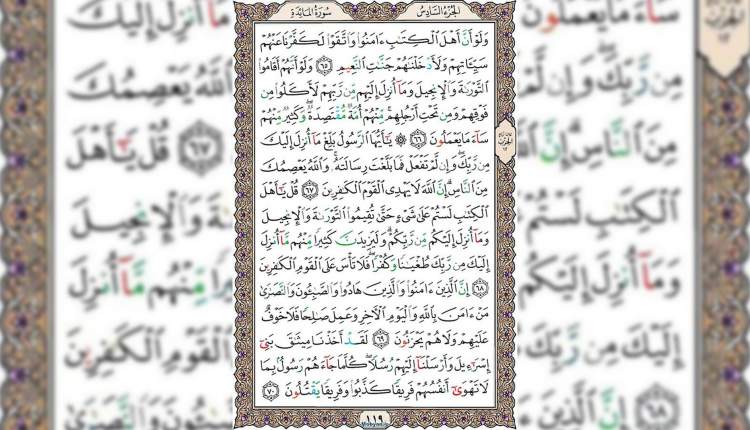 الجزء السادس
سورة المائدة
وَلَوْ أَنَّ أَهْلَ ٱلْكِتَٰبِ ءَامَنُوا۟ وَٱتَّقَوْا۟ لَكَفَّرْنَا عَنْهُمْ
سَيِّـَٔاتِهِمْ وَلَأَدْخَلْنَٰهُمْ جَنَّٰتِ ٱلنَّعِيمِ ٦٥ وَلَوْ أَنَّهُمْ أَقَامُوا۟
ٱلتَّوْرَىٰةَ وَٱلْإِنجِيلَ وَمَآ أُنزِلَ إِلَيْهِم مِّن رَّبِّهِمْ لَأَكَلُوا۟ مِن
فَوْقِهِمْ وَمِن تَحْتِ أَرْجُلِهِم مِّنْهُمْ أُمَّةٌ مُّقْتَصِدَةٌ وَكَثِيرٌ مِّنْهُمْ
سَآءَ مَا يَعْمَلُونَ ٦٦ ۞ يَٰٓأَيُّهَا ٱلرَّسُولُ بَلِّغْ مَآ أُنزِلَ إِلَيْكَ
مِن رَّبِّكَ وَإِن لَّمْ تَفْعَلْ فَمَا بَلَّغْتَ رِسَالَتَهُۥ وَٱللَّهُ يَعْصِمُكَ
مِنَ ٱلنَّاسِ إِنَّ ٱللَّهَ لَا يَهْدِى ٱلْقَوْمَ ٱلْكَٰفِرِينَ ٦٧ قُلْ يَٰٓأَهْلَ
ٱلْكِتَٰبِ لَسْتُمْ عَلَىٰ شَىْءٍ حَتَّىٰ تُقِيمُوا۟ ٱلتَّوْرَىٰةَ وَٱلْإِنجِيلَ
وَمَآ أُنزِلَ إِلَيْكُم مِّن رَّبِّكُمْ وَلَيَزِيدَنَّ كَثِيرًا مِّنْهُم مَّآ أُنزِلَ
إِلَيْكَ مِن رَّبِّكَ طُغْيَٰنًا وَكُفْرًا فَلَا تَأْسَ عَلَى ٱلْقَوْمِ ٱلْكَٰفِرِينَ
٦٨ إِنَّ ٱلَّذِينَ ءَامَنُوا۟ وَٱلَّذِينَ هَادُوا۟ وَٱلصَّٰبِـُٔونَ وَٱلنَّصَٰرَىٰ
مَنْ ءَامَنَ بِٱللَّهِ وَٱلْيَوْمِ ٱلْـَٔاخِرِ وَعَمِلَ صَٰلِحًا فَلَا خَوْفٌ
عَلَيْهِمْ وَلَا هُمْ يَحْزَنُونَ ٦٩ لَقَدْ أَخَذْنَا مِيثَٰقَ بَنِىٓ
إِسْرَٰٓءِيلَ وَأَرْسَلْنَآ إِلَيْهِمْ رُسُلًا كُلَّمَا جَآءَهُمْ رَسُولٌۢ بِمَا
لَا تَهْوَىٰٓ أَنفُسُهُمْ فَرِيقًا كَذَّبُوا۟ وَفَرِيقًا يَقْتُلُونَ ٧٠
١١٩